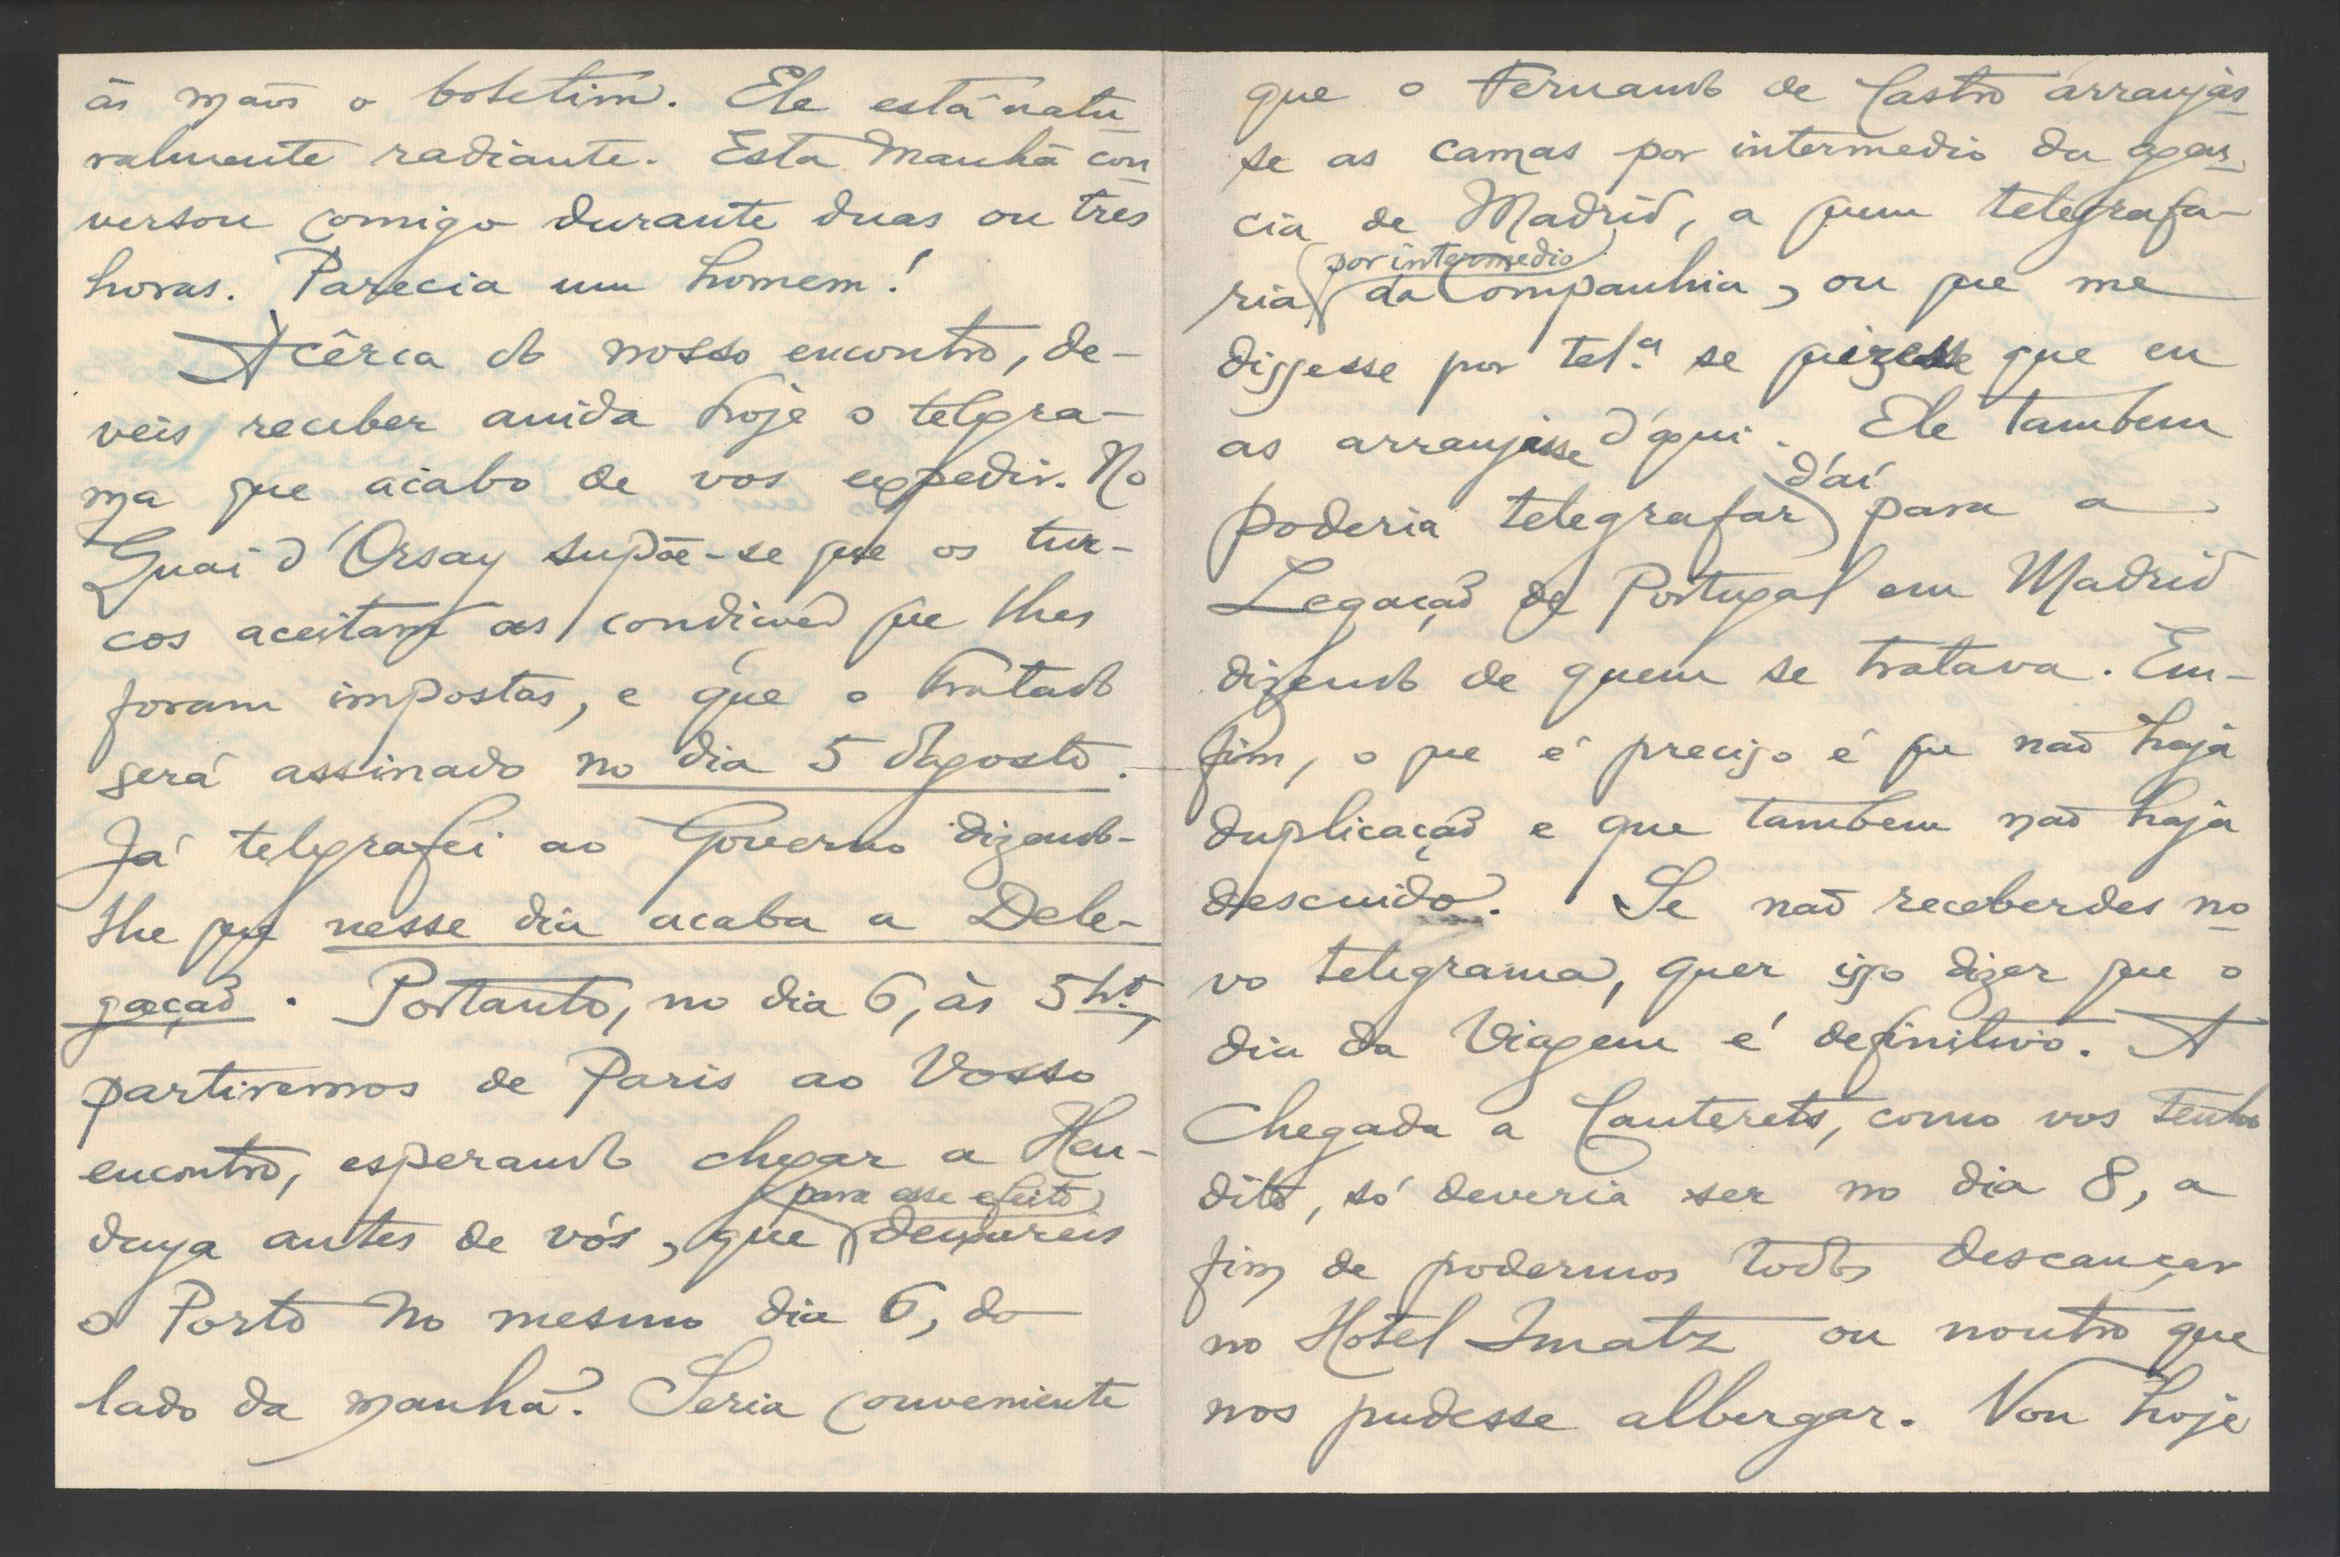 ás mãos o boletim. Ele está natu-
ralmente radiante. Esta manhã con-
versou comigo durante duas ou tres
horas. Parecia um homem!
Àcêrca do nosso encontro, de-
veis receber ainda hoje o telegra-
ma que acabo de vos expedir. No
Quai d'Orsay supõe-se que os tur-
cos aceitam as condições que lhes
foram impostas, e que o tratado
será assinado no dia 5 d'Agosto.
Já telegrafei ao Governo dizendo-
lhe que nesse dia acaba a Dele-
gação. Portanto, no dia 6, ás 5 hs,
partiremos de Paris ao vosso
encontro, esperando chegar a Hen-
para esse efeito
daya antes de vós, que deixareis
o Porto no mesmo dia 6, do
lado da manhã. Seria conveniente
que o Fernando de Castro arranjas-
se as camas por intermedio da agen-
cia de Madrid, a quem telegrafa-
por intermedio
ria da Companhia, ou que me
dissesse por tel.a se quizesse que eu
as arranjasse d'aqui. Ele tambem
d'aí
poderia telegrafar para a
Legação de Portugal em Madrid
dizendo de quem se tratava. Em-
fim, o que é preciso é que não haja
duplicação e que tambem não haja
descuido. Se não receberdes no-
vo telegrama, quer isso dizer que o
dia da viagem é definitivo. A
chegada a Cauterets, como vos tenho
dito, só deveria ser no dia 8, a
fim de podermos todos descançar
no Hotel Imatz ou noutro que
nos pudesse albergar. Vou hoje